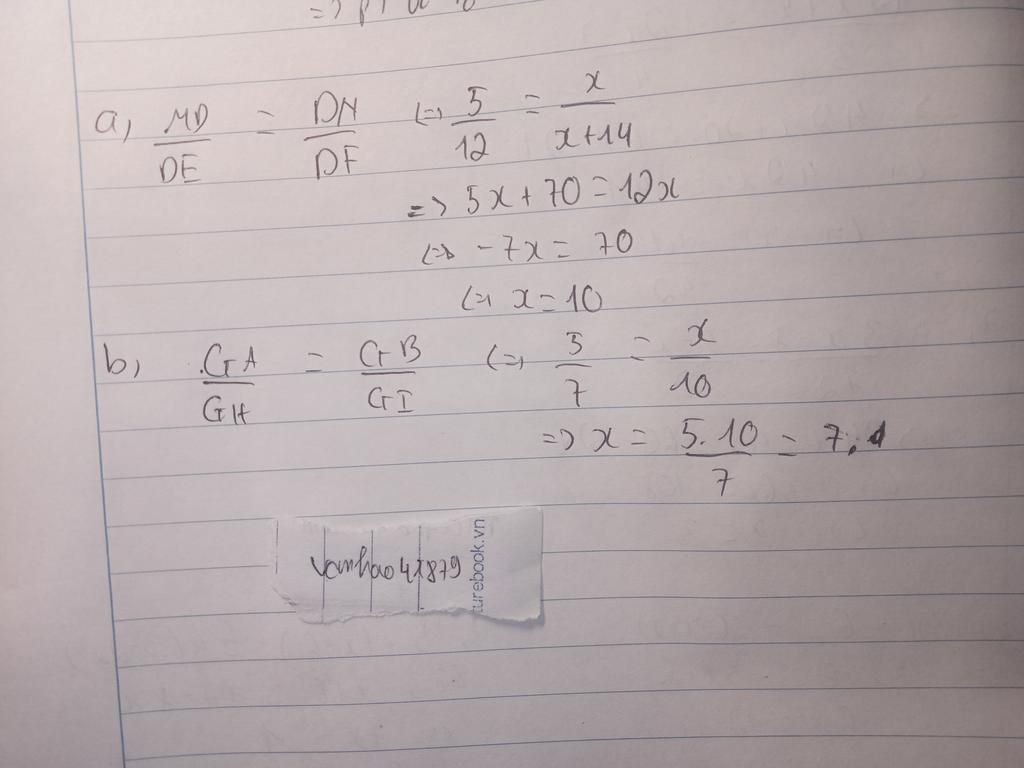 a, MD/DE = DN/DF <=> 5/12 = x/x+14
=> 5x + 70 = 12x
<=> -7x = 70
<=> x = 10
b, GA/GH = GB/GI <=> 5/7 = x/10
=> x = 5.10/7 = 7,1
vanhao41879
turebook.vn